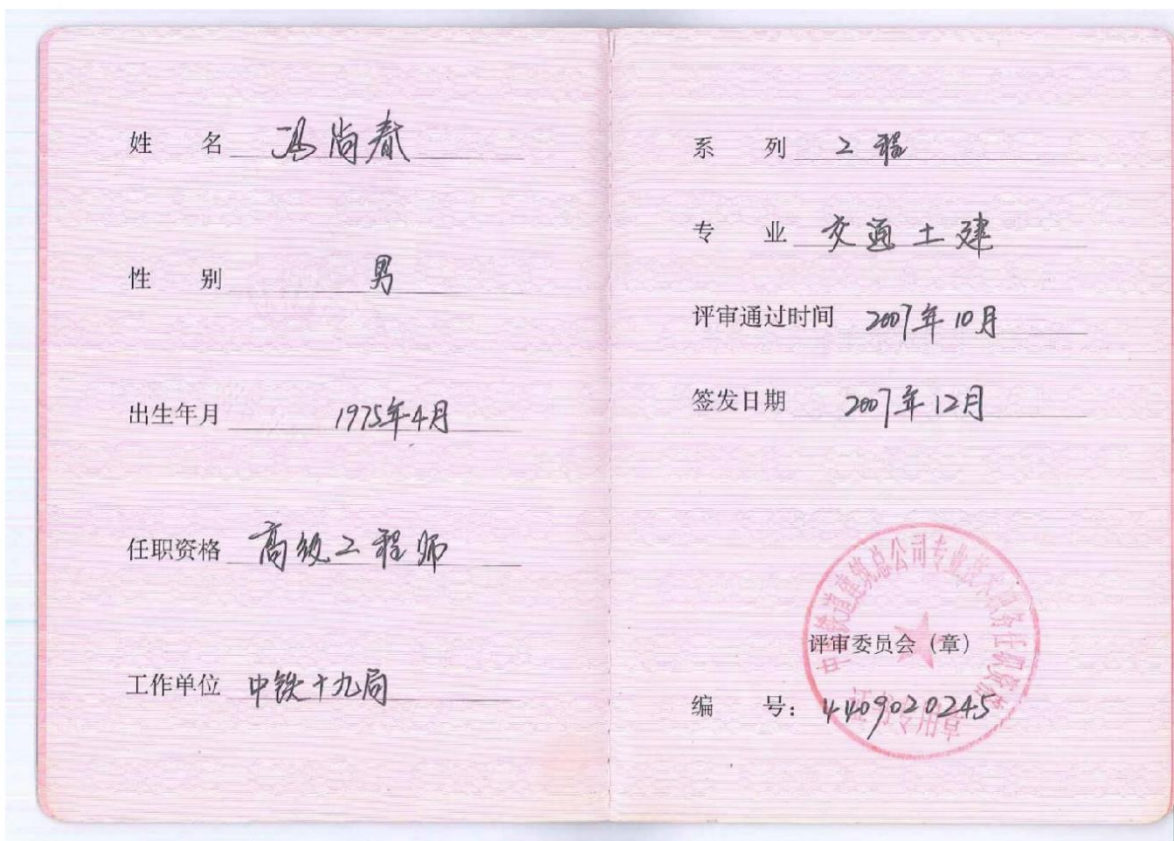 姓 名 冯尚春
性 别 男
出生年月 1975年4月
任职资格 高级工程师
工作单位 中铁十九局
系 列 工程
专 业 交通土建
评审通过时间 2007年10月
签发日期 2007年12月
中国铁道建筑总公司专业技术职务任职资格
评审委员会（章）
编 号： 4409020245
证书专用章